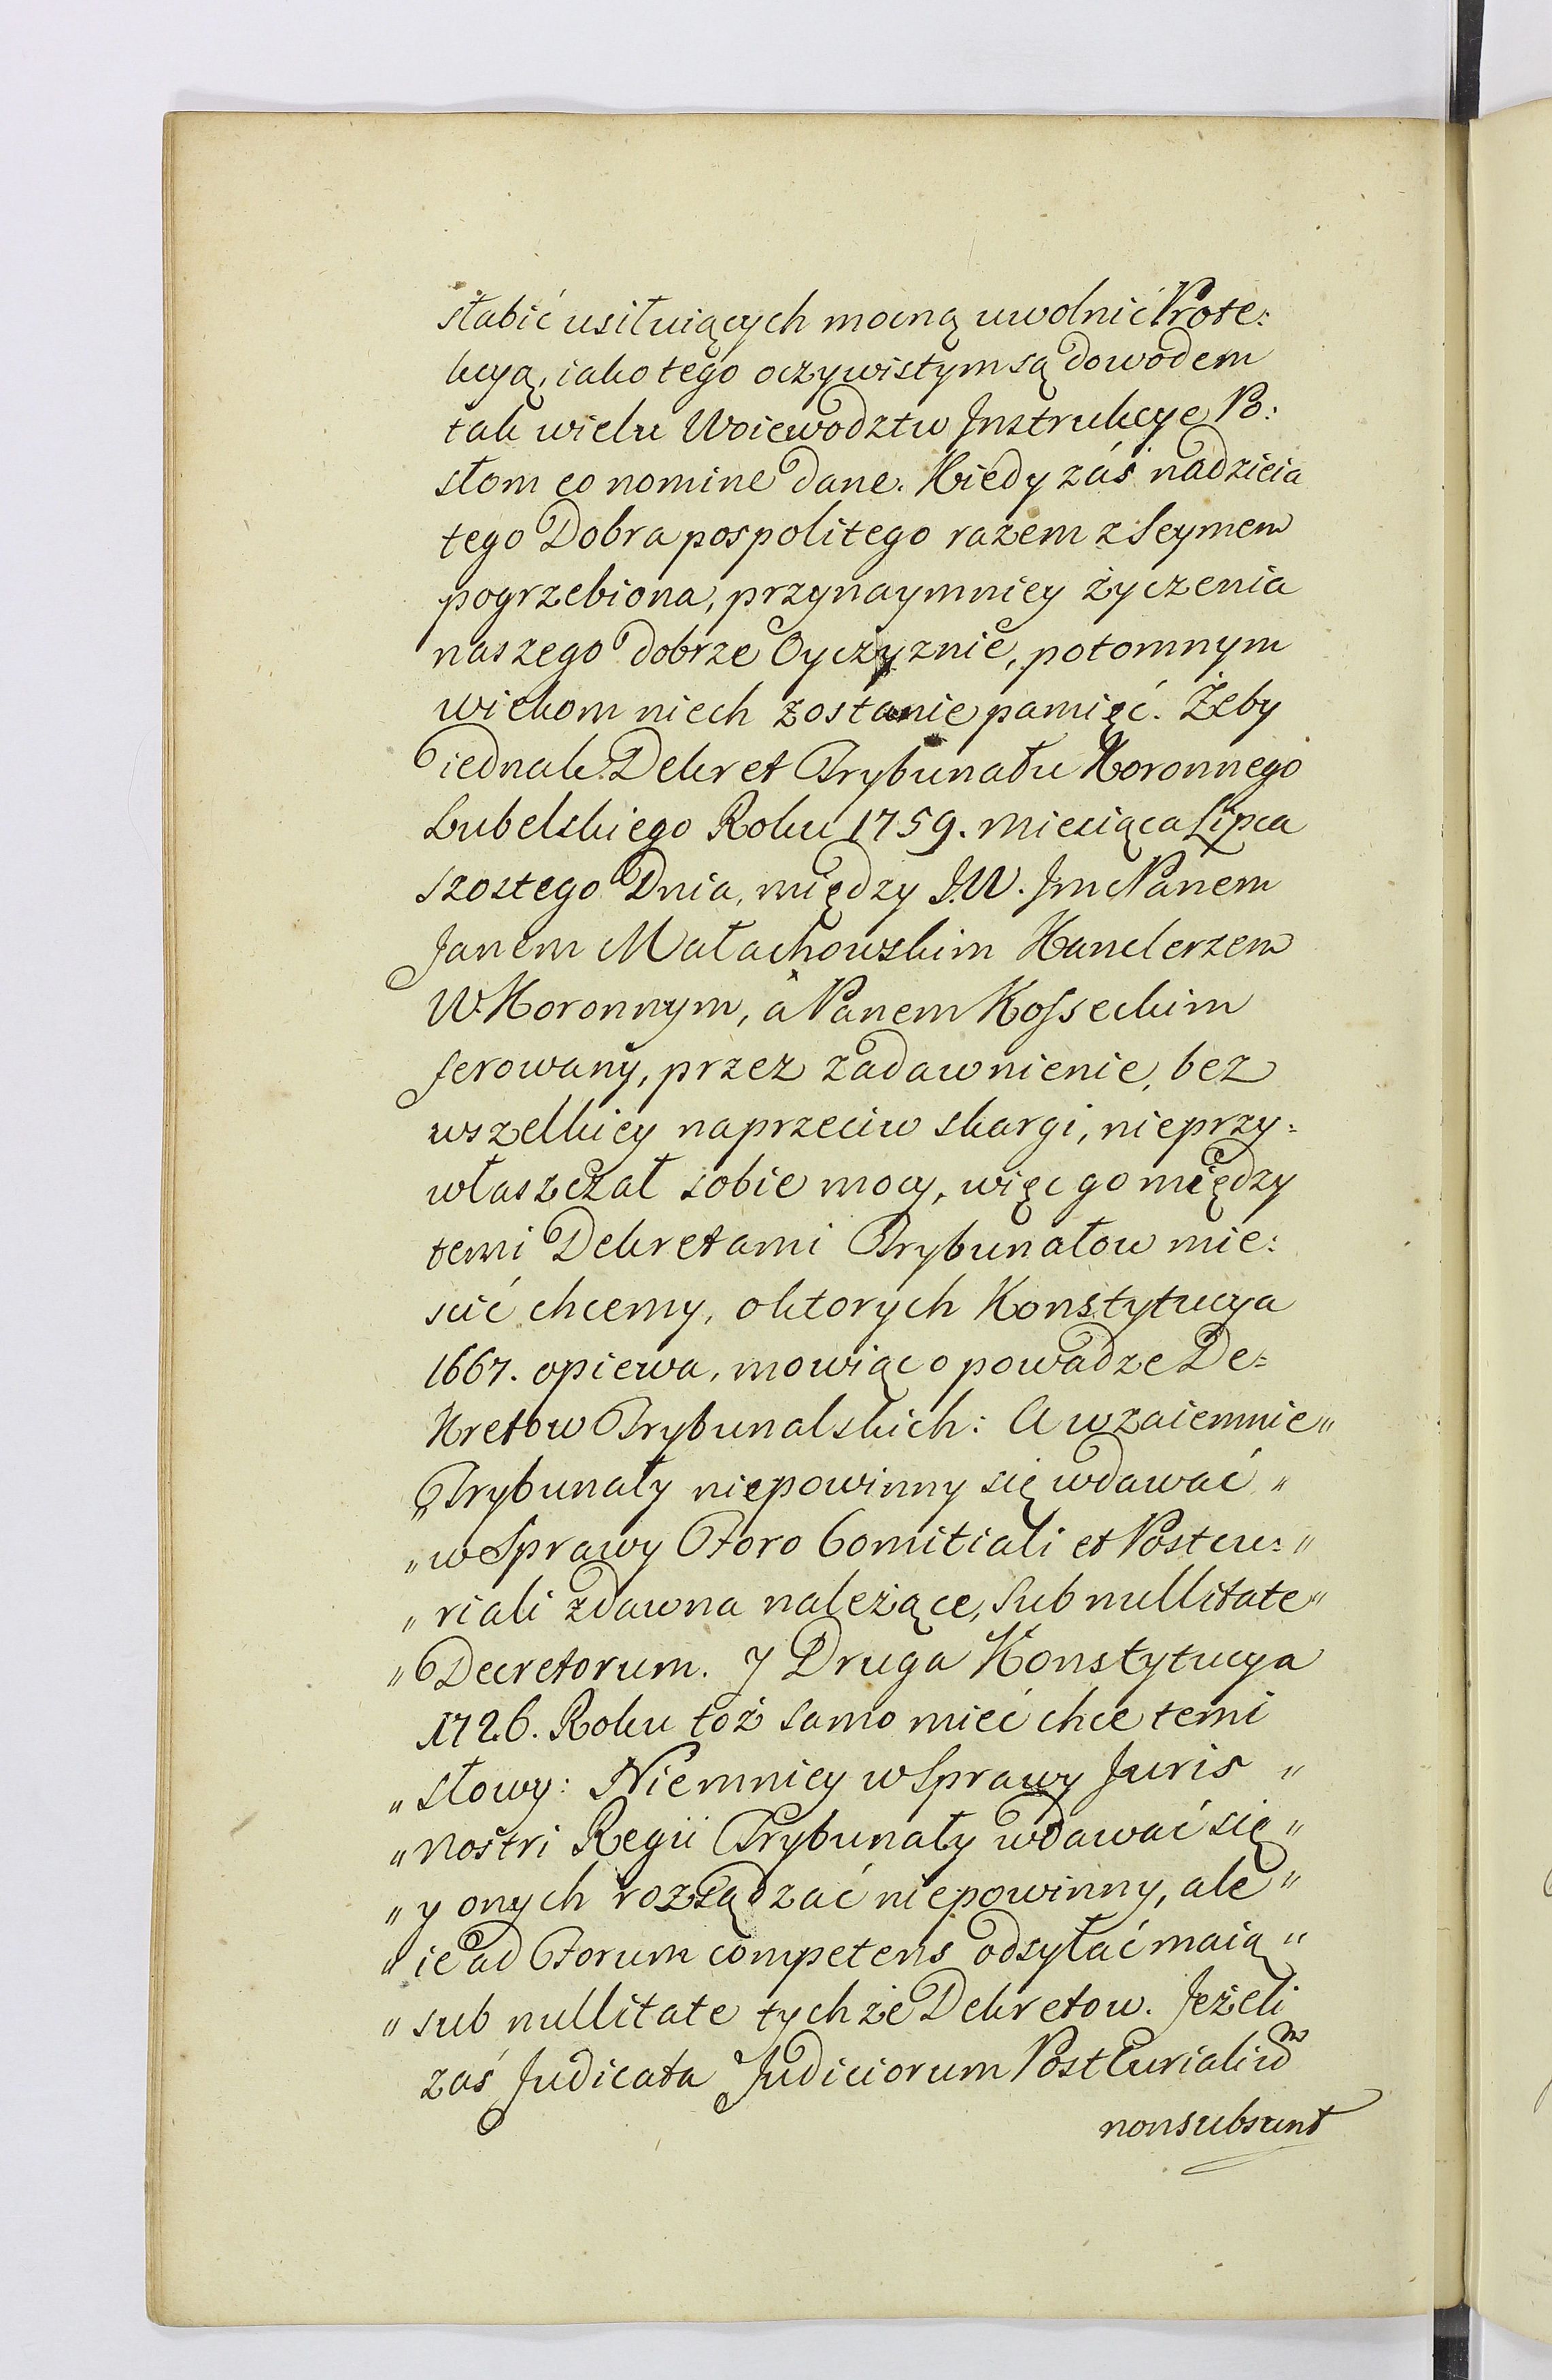 słabić usiłuiących mocną uwolnić Prote:
kcyą, iako tego oczywistym są dowodem
tak wielu Woiewodztw Jnstrukcye Po:
słom eo nomine dane. Kiedy zaś nadzieia
tego Dobra pospolitego razem z Seymem
pogrzebiona, przynaymniey życzenia
naszego dobrze Oyczyznie, potomnym
wiekom niech zostanie pamięć. Żeby
iednak Dekret Trybunału Koronnego
Lubelskiego Roku 1759. Miesiąca Lipca
szostego Dnia, między J.W. Jm Panem
Janem Małachowskim Kanclerzem
W Koronnym, à Panem Kosseckim
ferowany, przez zadawnienie, bez
wszelkiey naprzeciw skargi, nieprzy:
właszczał sobie mocy, więc go między
temi Dekretami Trybunałow mie:
scić chcemy, o ktorych Konstytucya
1667. opiewa, mowiąc o powadze De:
Kretow Trybunalskich: A wzaiemnie„
„Trybunały niepowinny się wdawać„
„w Sprawy Foro Comitiali et Postcu:„
„riali zdawna należące, sub nullitate„
„Decretorum. J Druga Konstytucya
1726. Roku toż samo mieć chce temi
„słowy: Niemniey w Sprawy Juris„
„Nostri Regii Trybunały wdawać się„
„y onych rozsądzać niepowinny, ale„
„ie ad Forum competens odsyłać maią„
„sub nullitate tychże Dekretow. Jeżeli
zaś Judicata Judiciorum PostCurialium
non subsunt